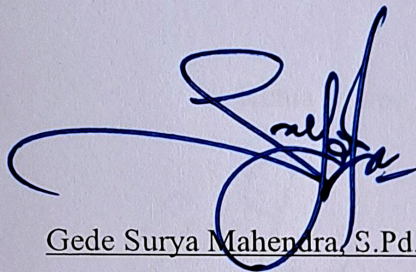 Gede Surya Mahendra, S.Pd.